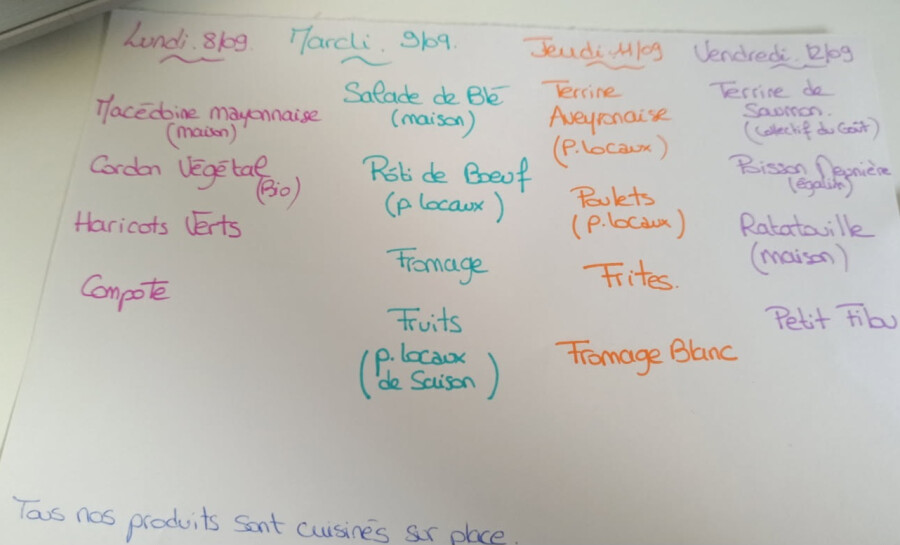 Lundi 8/09
Macédoine mayonnaise
(maison)
Cordon Végétal
(Bio)
Haricots Verts
Compote
Mardi 9/09.
Salade de Blé
(maison)
Rôti de Boeuf
(p locaux)
Fromage
Fruits
(p. locaux
de Saison)
Jeudi 11/09
Terrine
Aveyronaise
(P. locaux)
Poulets
(P. locaux)
Frites.
Fromage Blanc
Vendredi 12/09
Terrine de
Saumon.
(Collectif du Goût)
Poisson Meunière
(égalim)
Ratatouille
(maison)
Petit Filou
Tous nos produits sont cuisinés sur place.